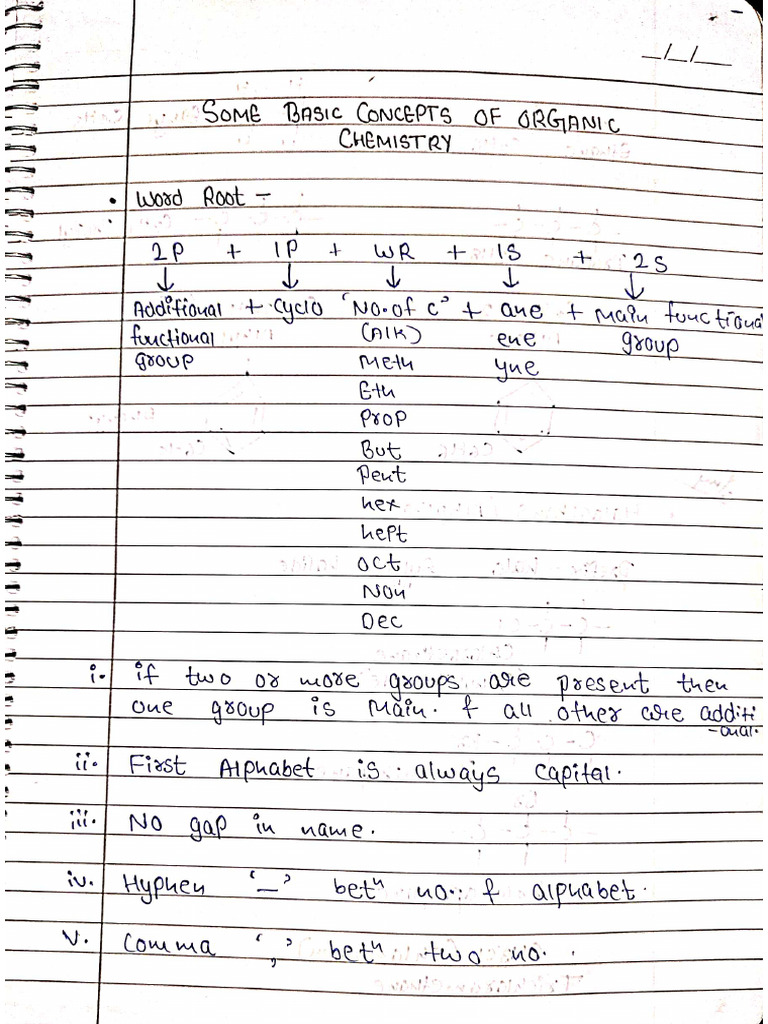 _/_/__
SOME BASIC CONCEPTS OF ORGANIC
CHEMISTRY
• Word Root –
2P + 1P + WR + 1S + 2S
↓ ↓ ↓ ↓ ↓
Additional + Cyclo 'No. of C' + ane + Main functional
functional (Alk) ene group
group Meth yne
Eth
Prop
But
Pent
hex
hept
oct
Non
Dec
i. if two or more groups are present then
one group is Main. & all other are additi
-onal.
ii. First Alphabet is always capital.
iii. No gap in name.
iv. Hyphen '–' betⁿ no. & alphabet.
v. Comma ',' betⁿ two no.